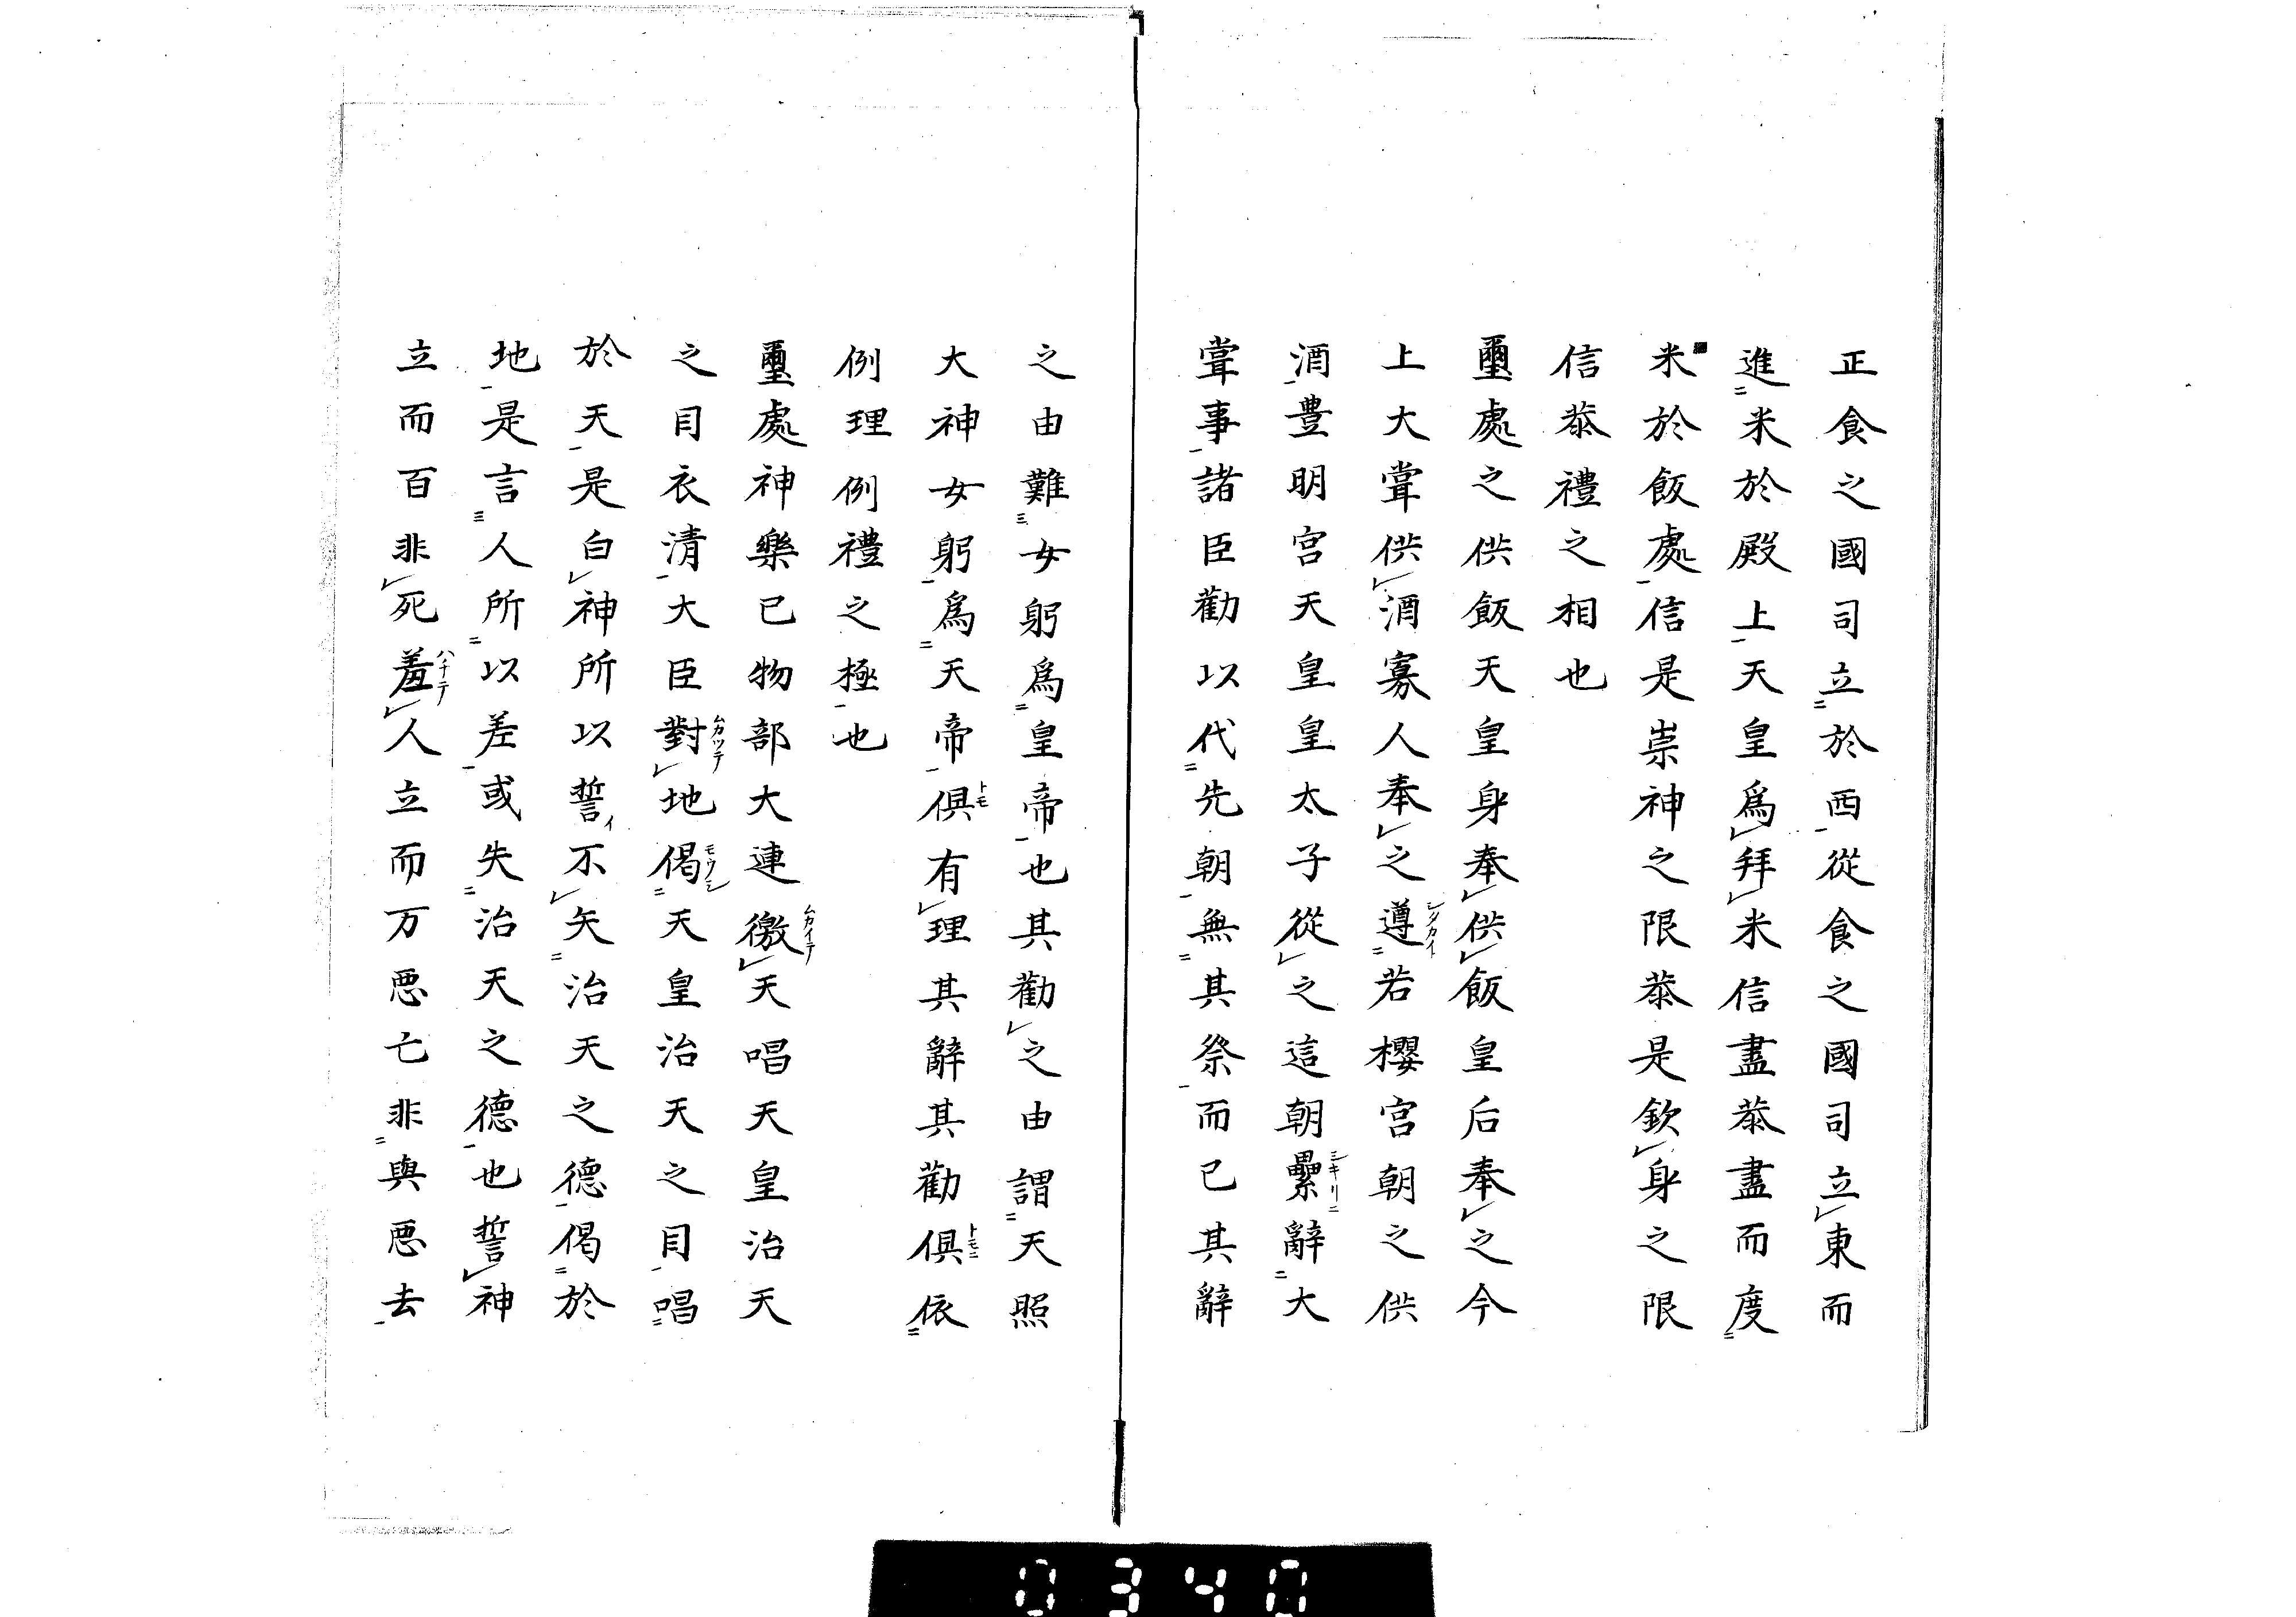 正食之國司立於西從食之國司立東而
進米於殿上天皇爲拜米信盡恭盡而度
米於飯處信是崇神之限恭是欽身之限
信恭禮之相也
璽處之供飯天皇身奉供飯皇后奉之今
上大甞供酒寡人奉之遵若櫻宮朝之供
酒豊明宮天皇皇太子從之這朝纍辭大
甞事諸臣勸以代先朝無其祭而已其辭
之由難女躬爲皇帝也其勸之由謂天照
大神女躬爲天帝俱有理其辭其勸俱依
例理例禮之極也
璽處神樂已物部大連徼天唱天皇治天
之目衣清大臣對地偈天皇治天之目唱
於天是白神所以誓不矢治天之德偈於
地是言人所以差或失治天之德也誓神
立而百非死羞人立而万悪亡非與悪去
0340